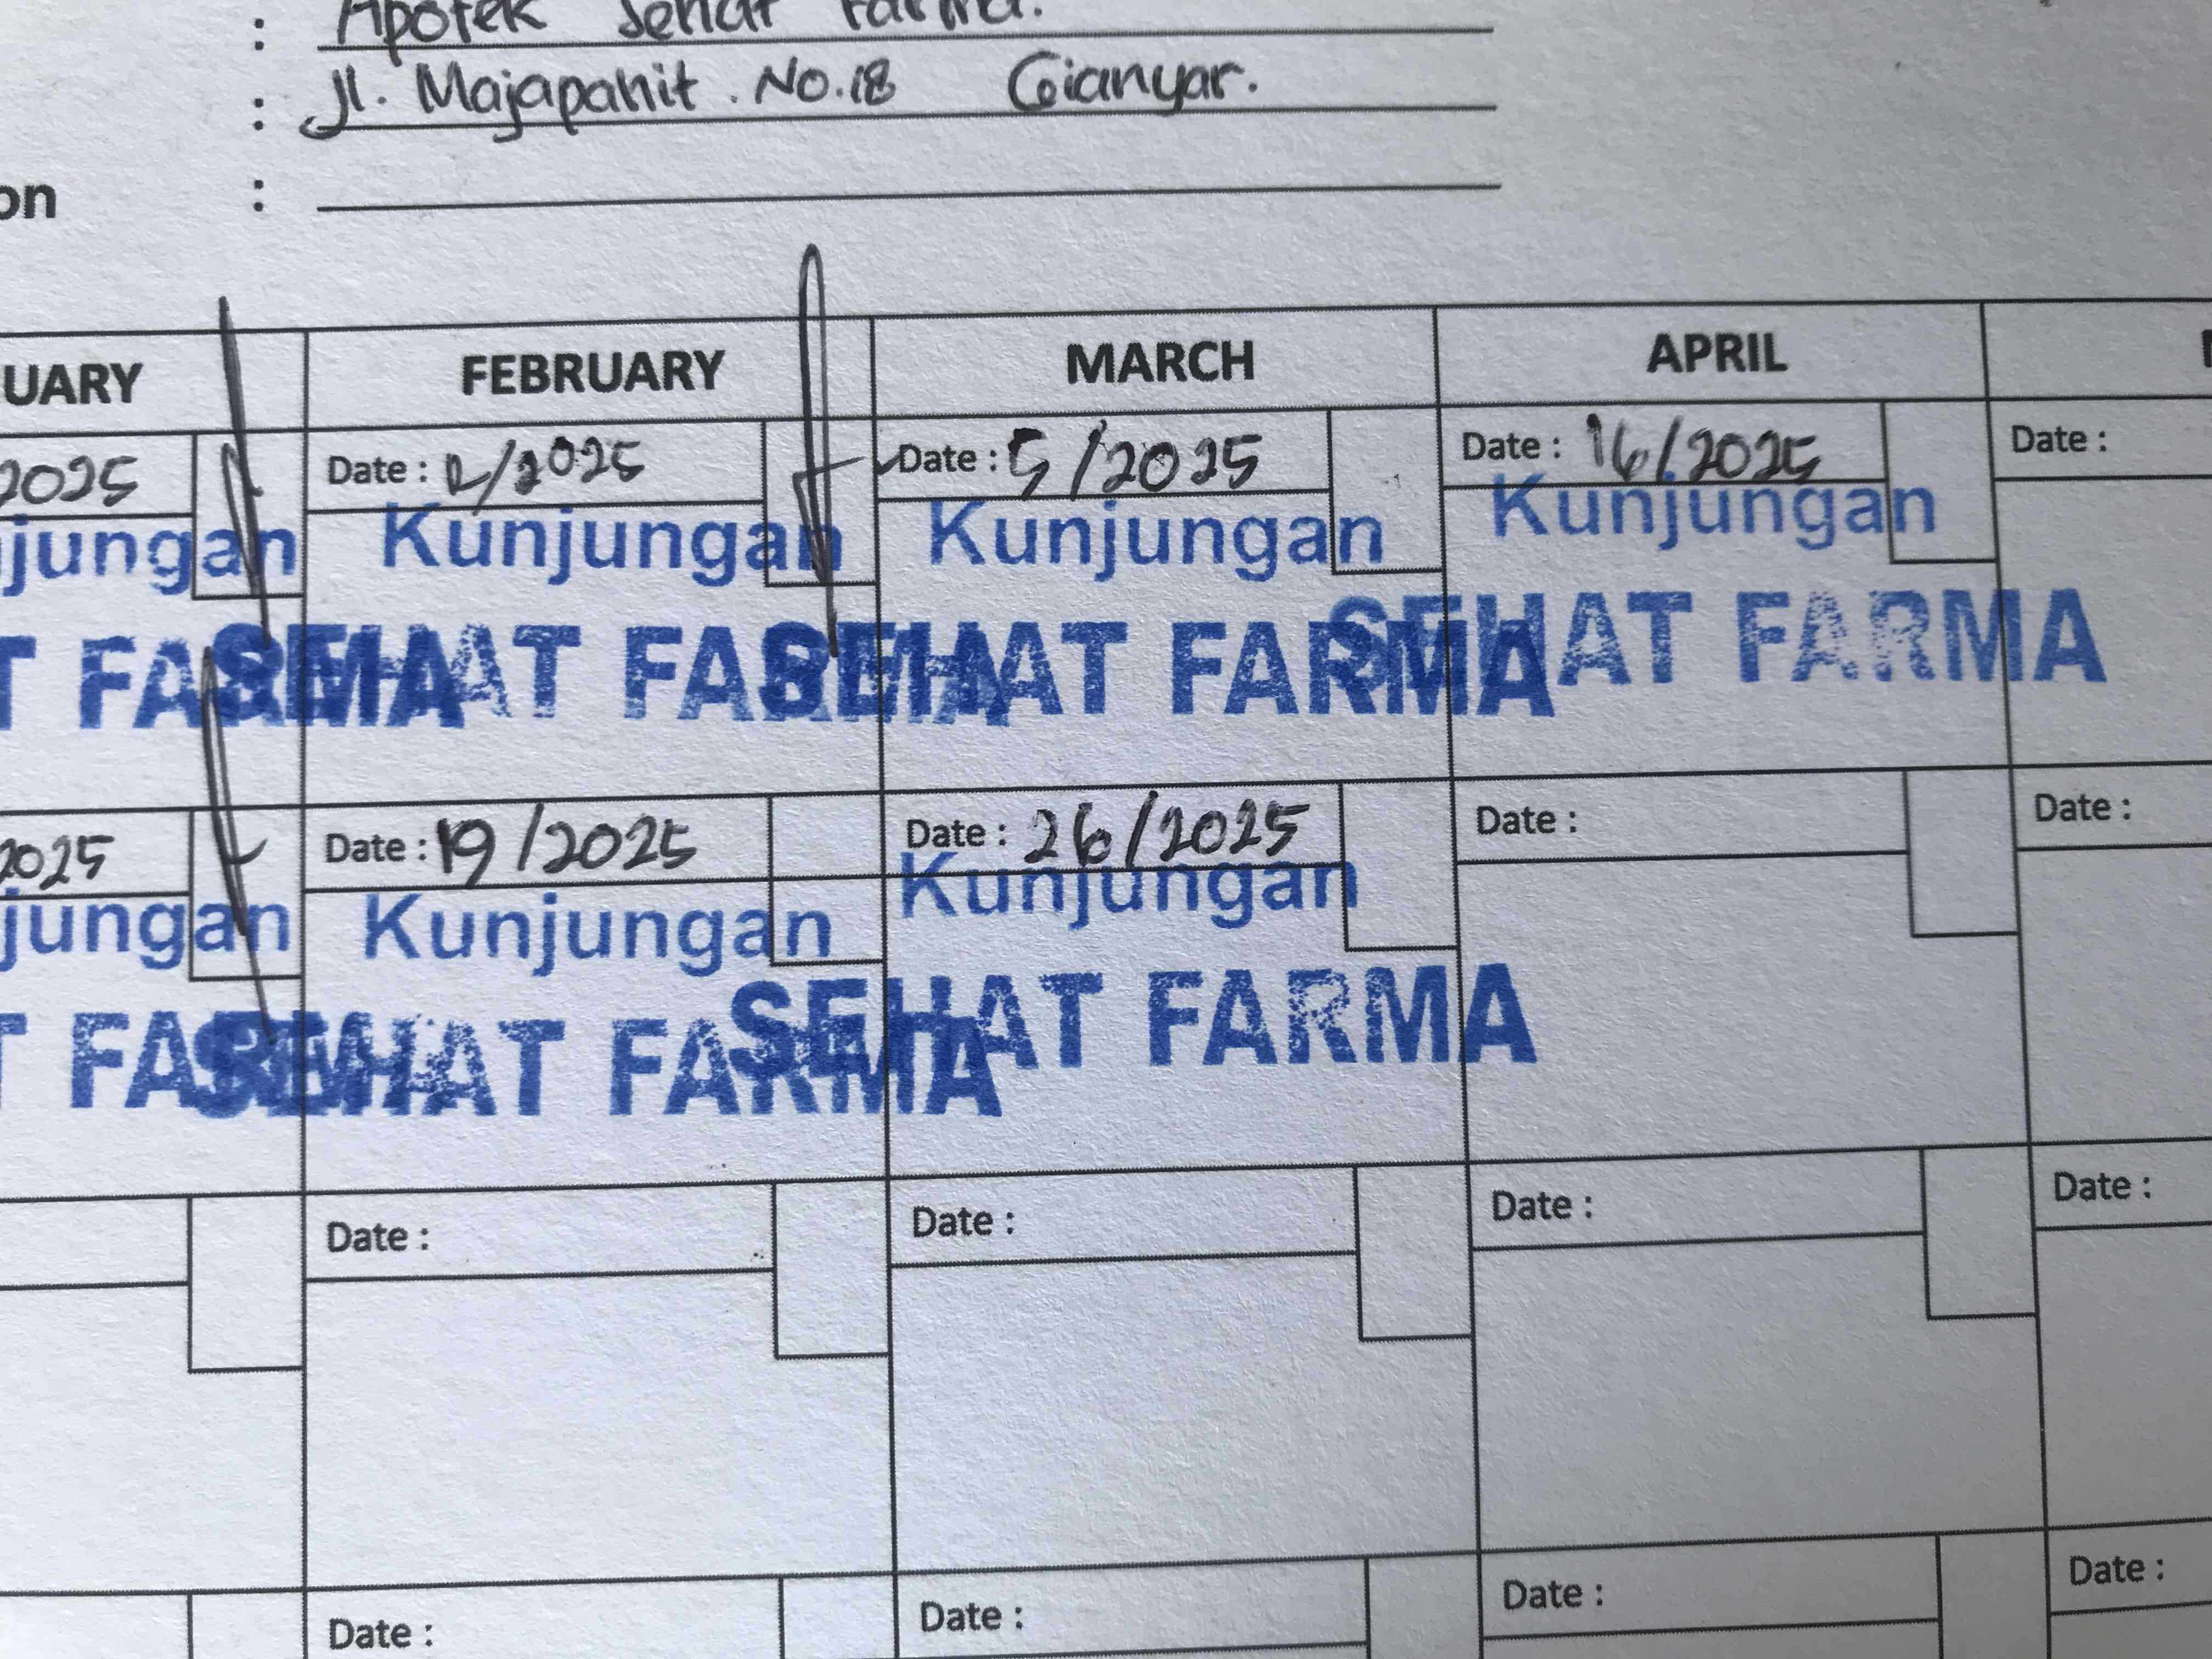 : Apotek Sehat Farma.
: Jl. Majapahit. No.18 Gianyar.
on :
UARY FEBRUARY MARCH APRIL
2025 Date : /2025 Date : 5/2025 Date : 16/2025 Date :
jungan Kunjungan Kunjungan Kunjungan
T FARMA SEHAT FARMA SEHAT FARMA SEHAT FARMA
2025 Date : 19/2025 Date : 26/2025 Date : Date :
jungan Kunjungan Kunjungan
T FARMA SEHAT FARMA SEHAT FARMA
Date : Date : Date : Date :
Date : Date : Date : Date :